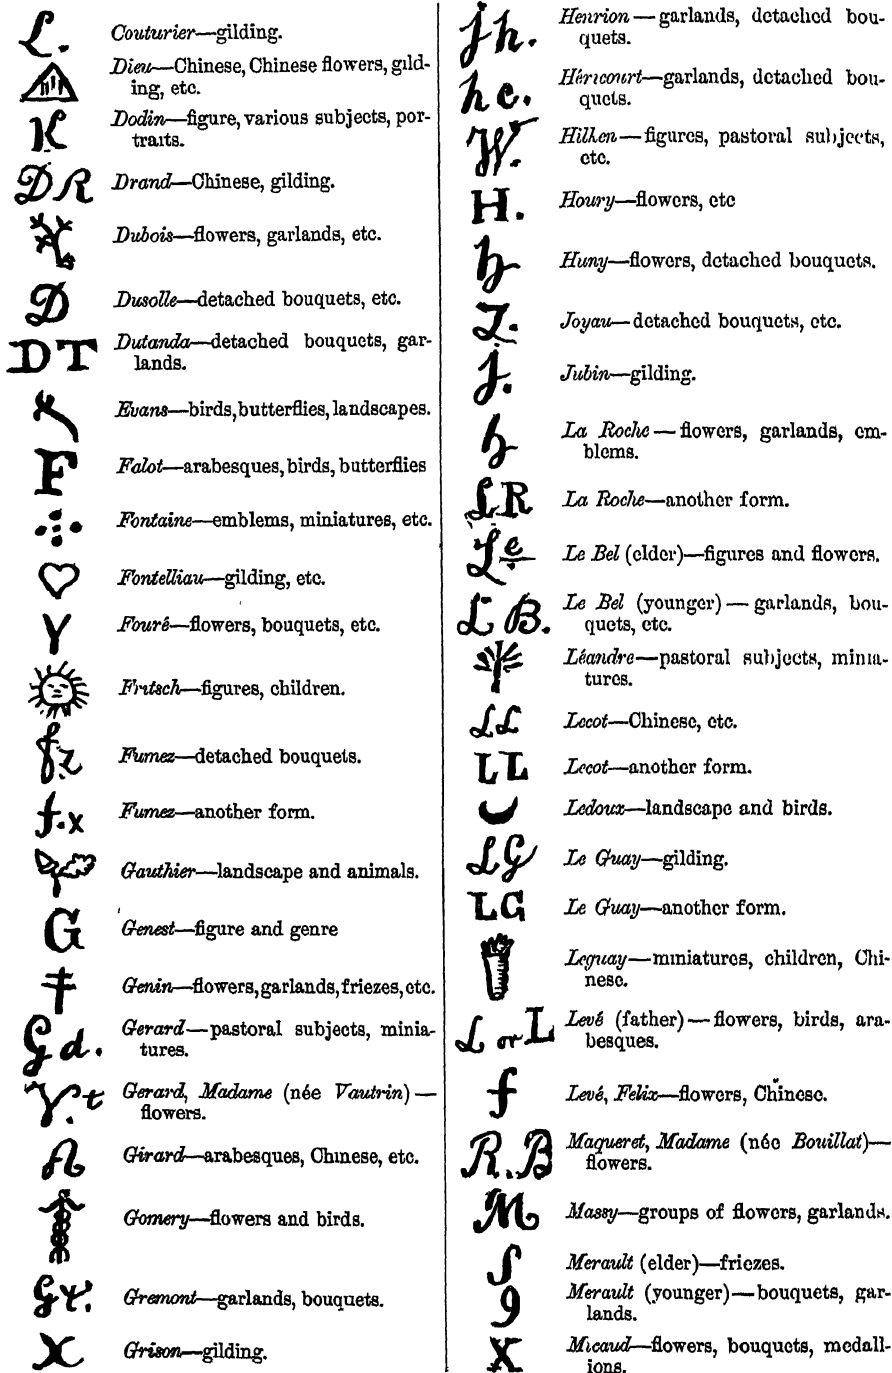 L. Couturier—gilding.
Dieu—Chinese, Chinese flowers, gild-
ing, etc.
K Dodin—figure, various subjects, por-
traits.
DR Drand—Chinese, gilding.
Dubois—flowers, garlands, etc.
D Dusolle—detached bouquets, etc.
DT Dutanda—detached bouquets, gar-
lands.
Evans—birds, butterflies, landscapes.
F Falot—arabesques, birds, butterflies
Fontaine—emblems, miniatures, etc.
Fontelliau—gilding, etc.
Y Fouré—flowers, bouquets, etc.
Fritsch—figures, children.
fz. Fumez—detached bouquets.
f.x Fumez—another form.
Gauthier—landscape and animals.
G Genest—figure and genre
Genin—flowers, garlands, friezes, etc.
Gd. Gerard—pastoral subjects, minia-
tures.
V.t Gerard, Madame (née Vautrin)—
flowers.
A Girard—arabesques, Chinese, etc.
Gomery—flowers and birds.
Gt. Gremont—garlands, bouquets.
X Grison—gilding.
jh. Henrion—garlands, detached bou-
quets.
hc. Héricourt—garlands, detached bou-
quets.
W. Hilken—figures, pastoral subjects,
etc.
H. Houry—flowers, etc
h Huny—flowers, detached bouquets.
Z. Joyau—detached bouquets, etc.
j. Jubin—gilding.
h La Roche—flowers, garlands, em-
blems.
LR La Roche—another form.
Le Le Bel (elder)—figures and flowers.
LB. Le Bel (younger)—garlands, bou-
quets, etc.
Léandre—pastoral subjects, minia-
tures.
LL Lecot—Chinese, etc.
LL Lecot—another form.
Ledoux—landscape and birds.
LG Le Guay—gilding.
LG Le Guay—another form.
Leguay—miniatures, children, Chi-
nese.
L or L Levé (father)—flowers, birds, ara-
besques.
f Levé, Felix—flowers, Chinese.
R.B Maqueret, Madame (née Bouillat)—
flowers.
M Massy—groups of flowers, garlands.
S Merault (elder)—friezes.
9 Merault (younger)—bouquets, gar-
lands.
X Micaud—flowers, bouquets, medall-
ions.